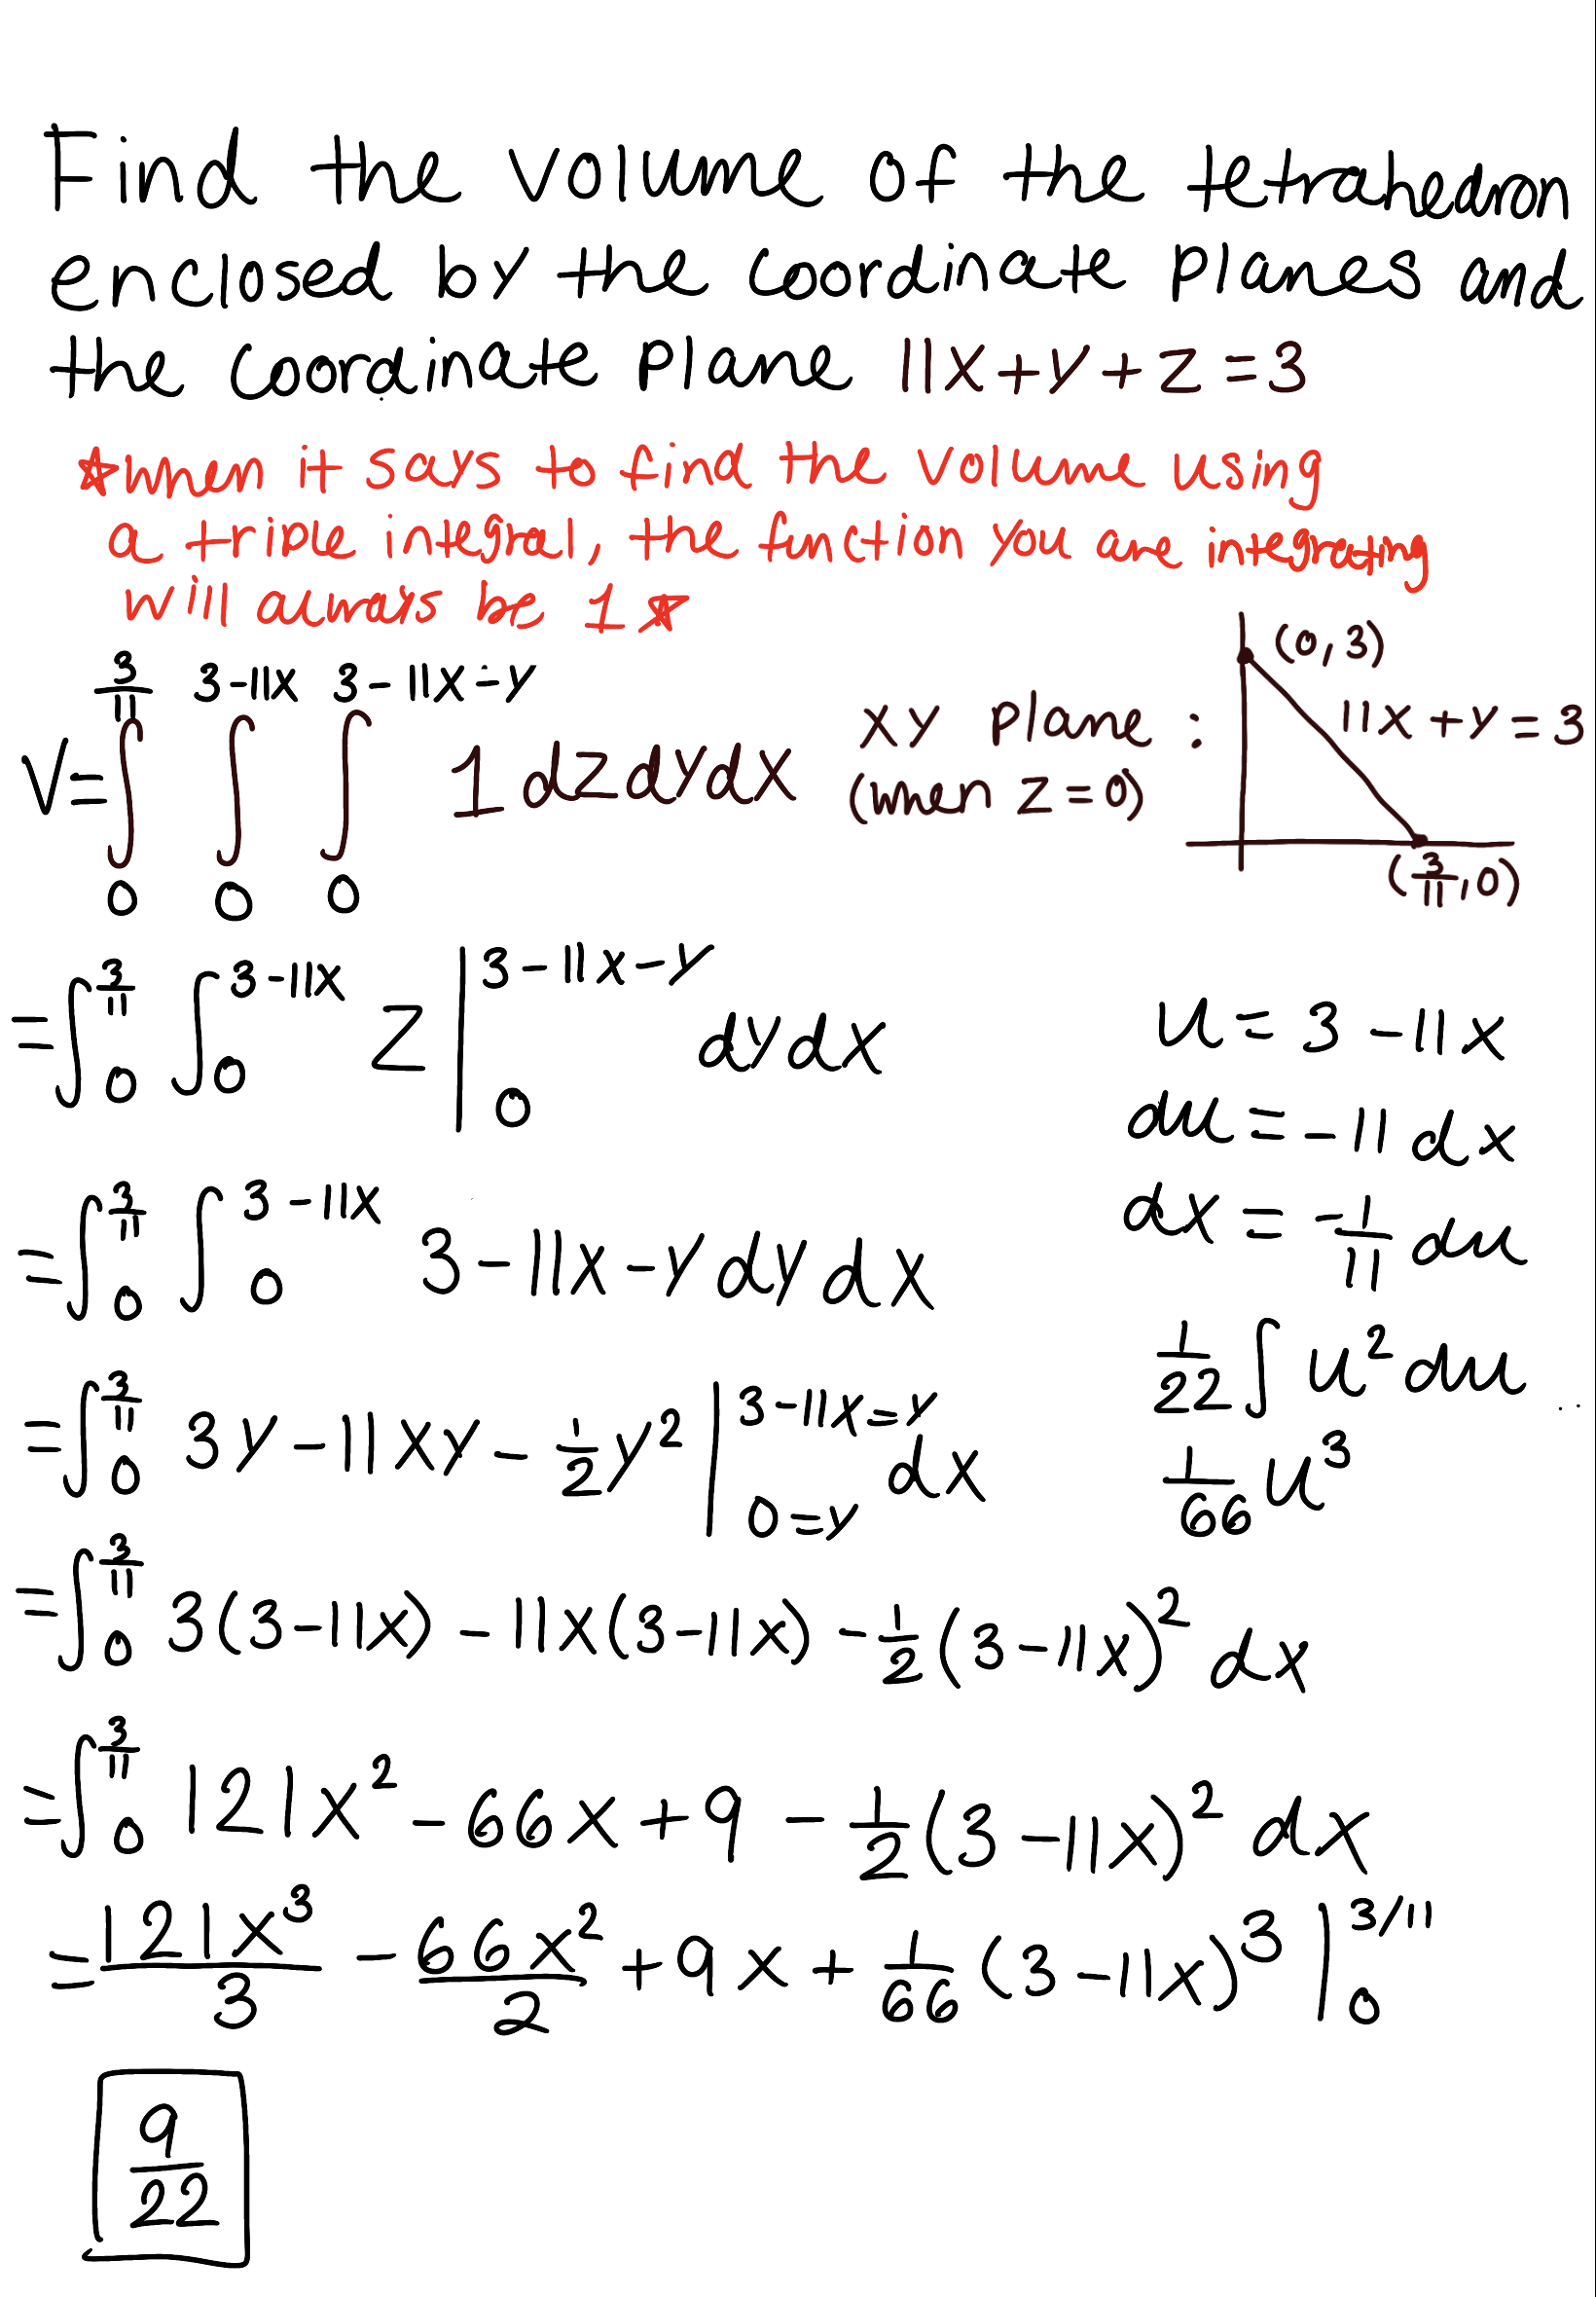 Find the volume of the tetrahedron
enclosed by the coordinate planes and
the coordinate plane 11x+y+z=3
☆when it says to find the volume using
a triple integral, the function you are integrating
will always be 1☆
V=∫_0^{3/11} ∫_0^{3-11x} ∫_0^{3-11x-y} 1 dzdydx
xy plane :
(when z=0)
(0,3)
11x+y=3
(3/11,0)
=∫_0^{3/11} ∫_0^{3-11x} z |_0^{3-11x-y} dydx
=∫_0^{3/11} ∫_0^{3-11x} 3-11x-y dydx
=∫_0^{3/11} 3y-11xy-1/2y² |_{0=y}^{3-11x=y} dx
=∫_0^{3/11} 3(3-11x)-11x(3-11x)-1/2(3-11x)² dx
=∫_0^{3/11} 121x²-66x+9-1/2(3-11x)² dx
=121x³/3 - 66x²/2 +9x+1/66(3-11x)³ |_0^{3/11}
9/22
u=3-11x
du=-11dx
dx=-1/11 du
1/22∫u²du
1/66u³